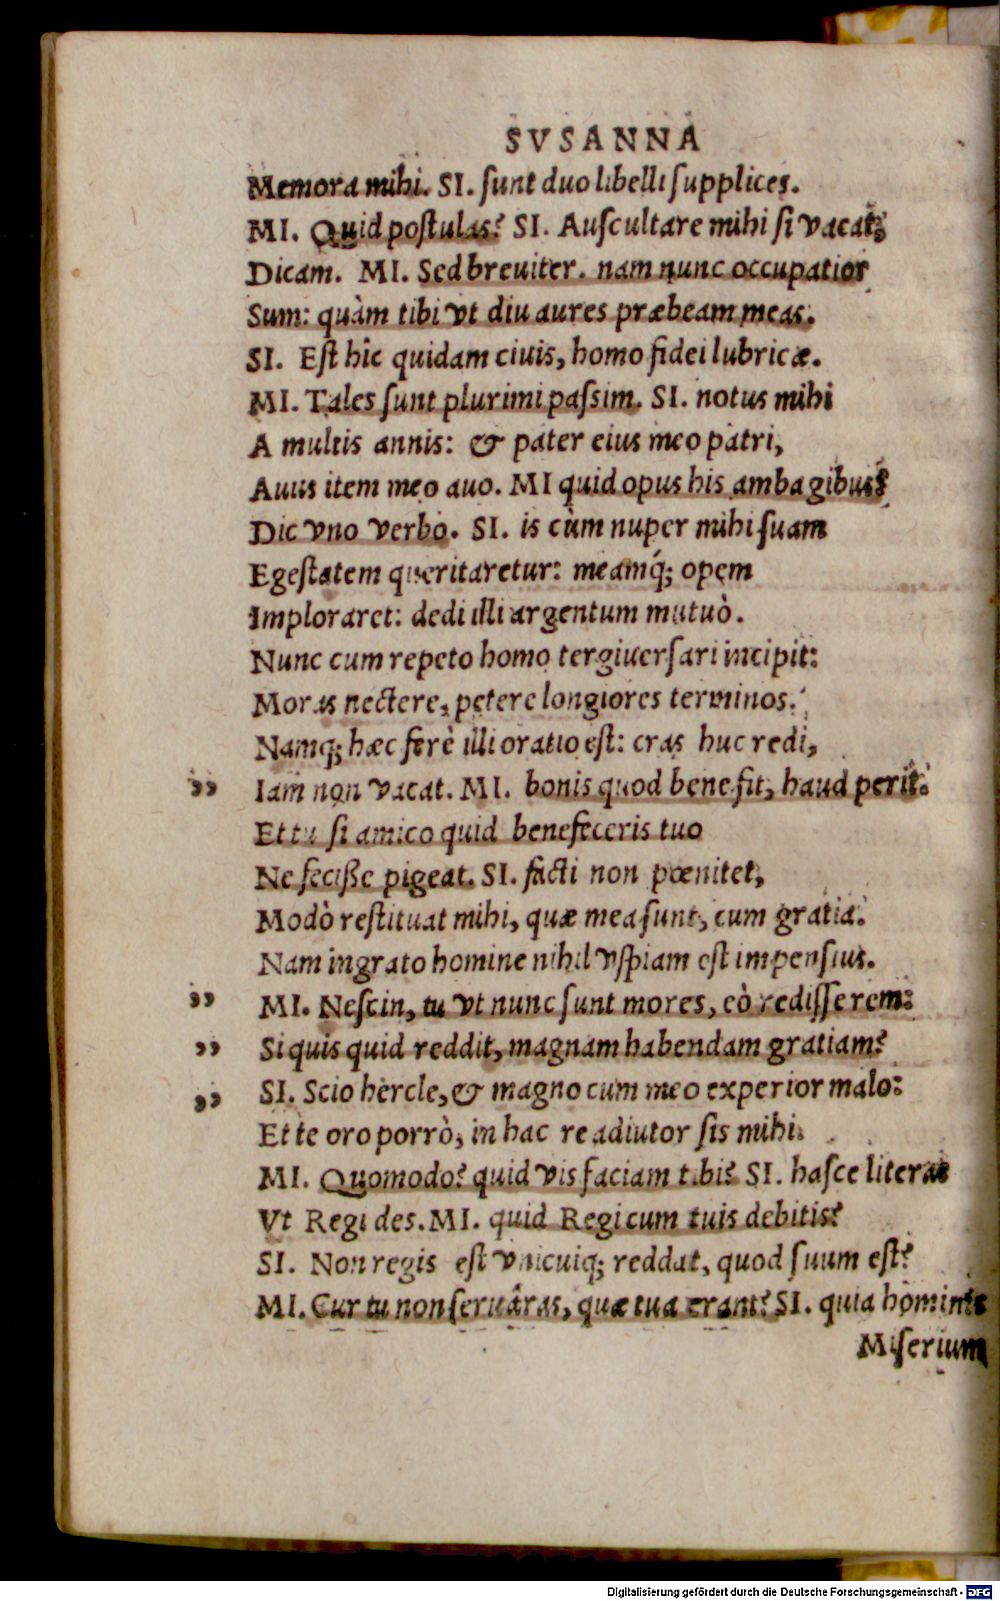 SVSANNA
Memora mihi. SI. ſunt duo libelli ſupplices.
MI. Quid poſtulas? SI. Auſcultare mihi ſi vacat;
Dicam. MI. Sed breuiter. nam nunc occupatior
Sum: quàm tibi vt diu aures præbeam meas.
SI. Eſt hîc quidam ciuis, homo fidei lubricæ.
MI. Tales ſunt plurimi paſsim. SI. notus mihi
A multis annis: & pater eius meo patri,
Auus item meo auo. MI quid opus his ambagibus?
Dic vno verbo. SI. is cùm nuper mihi ſuam
Egeſtatem queritaretur: meamq́; opem
Imploraret: dedi illi argentum mutuò.
Nunc cum repeto homo tergiuerſari incipit:
Moras nectere, petere longiores terminos.
Namq; hæc ferè illi oratio eſt: cras huc redi,
„ Iam non vacat. MI. bonis quod bene fit, haud perit.
Et tu ſi amico quid benefeceris tuo
Ne feciſſe pigeat. SI. facti non pœnitet,
Modò reſtituat mihi, quæ mea ſunt, cum gratia.
Nam ingrato homine nihil vſpiam eſt impenſius.
„ MI. Neſcin, tu vt nunc ſunt mores, eò rediſſe rem:
„ Si quis quid reddit, magnam habendam gratiam?
„ SI. Scio hercle, & magno cum meo experior malo:
Et te oro porrò, in hac re adiutor ſis mihi.
MI. Quomodo? quid vis faciam tibi? SI. haſce literas
Vt Regi des. MI. quid Regi cum tuis debitis?
SI. Non regis eſt vnicuiq; reddat, quod ſuum eſt?
MI. Cur tu non ſeruâras, quæ tua erant? SI. quia hominis
Miſerium
Digitalisierung gefördert durch die Deutsche Forschungsgemeinschaft - DFG